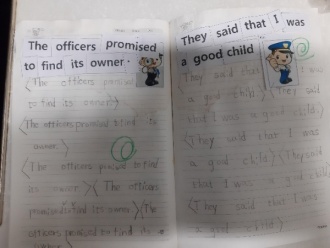 The officers promised
to find its owner.
<The officers promised
to find its owner>
<The officers promised to find its
owner>
<The officers promised to find
its owner> <The officers
promised to find its owner> <The
officers promised to find its
owner>
They said that I was
a good child
<They said that I was
a good child> <They said
that I was a good child>
<They said that I was
a good child> <They said
that I was a good child>
<They said that I was
a good child>